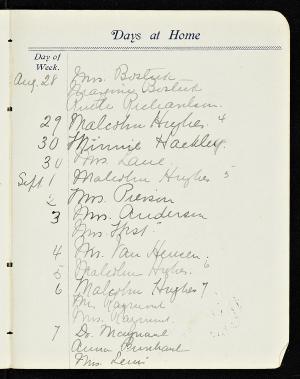 Days at Home
Day of
Week.
Aug. 28 Mrs. Bostick
Bostick
Ruth Richardson.
29 Malcolm Hughes 4
30 Minnie Hackley.
30 Mrs. Lane.
Sept. 1 Malcolm Hughes 5
2 Mrs. Pierson
3 Mrs. Anderson
Mrs.
4 Mr. Van Heusen.
5 Malcolm Hughes. 6
6 Malcolm Hughes 7
Mr. Raymond
Mrs. Raymond.
7 Dr. Maynard
Anna
Mrs.